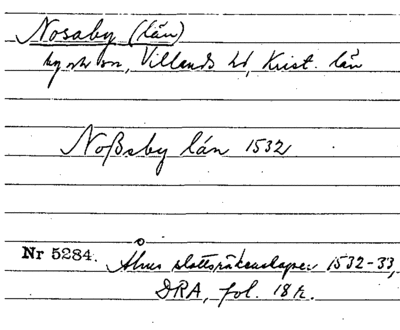 Nosaby (län)
by o sn, Villands hd, Krist. län
Noßsby lán 1532
Nr 5284. Åhus slottsräkenskaper 1532-33,
DRA, fol. 18 r.